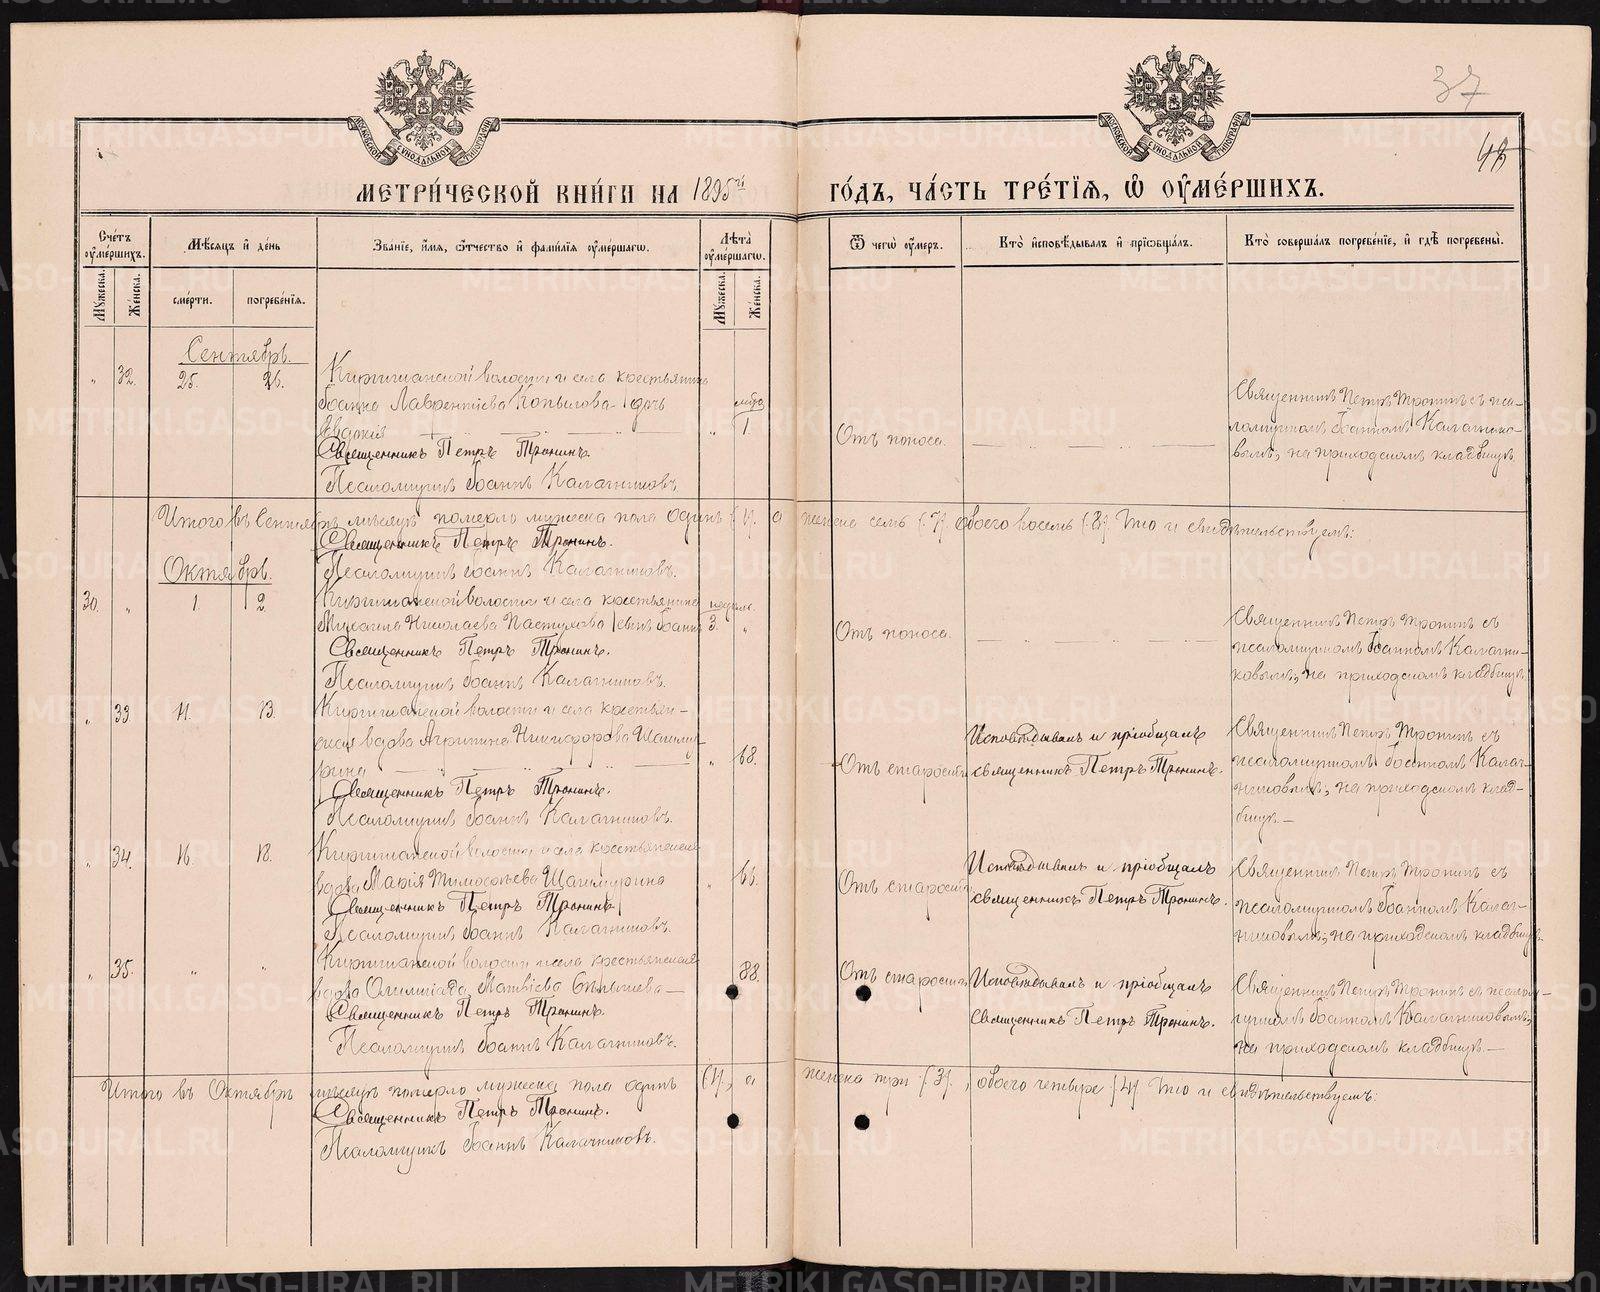 37
48
МОСКОВСКОЙ СѴНОДАЛЬНОЙ ТИПОГРАФІИ
МОСКОВСКОЙ СѴНОДАЛЬНОЙ ТИПОГРАФІИ
МЕТРИ́ЧЕСКОЙ КНИ́ГИ НА 1895й ГО́ДЪ, ЧА́СТЬ ТРЕ́ТІЯ, Ѡ ОУМЕ́РШИХЪ.
Сче́тъ оумершихъ.
Му́жеска.
Же́нска.
Мѣсяцъ и де́нь
сме́рти.
погребе́нія.
Зва́ніе, и́мя, о́тчество и фами́лія оуме́ршагѡ.
Лѣта̀ оуме́ршагѡ.
Му́жеска.
Же́нска.
Ѿ чегѡ̀ оу́меръ.
Кто̀ исповѣ́дывалъ и пріѡбща́лъ.
Кто̀ соверша́лъ погребе́ніе, и гдѣ̀ погребены̀.
Сентябрь.
" 32. 25. 26.
Киргишанской волости и села крестьянина
Іоанна Лаврентіева Копылова дочь
Евдокія
мѣс.
" 1.
Священникъ Петръ Тронинъ.
Псаломщикъ Іоаннъ Калачниковъ.
Отъ поноса.
Священникъ Петръ Тронинъ съ пса-
ломщикомъ Іоанномъ Калачнико-
вымъ; на приходскомъ кладбищѣ.
Итого въ Сентябрѣ мѣсяцѣ померло мужеска пола одинъ (1), а женска семь (7), обоего восемь (8). Что и свидѣтельствуемъ:
Священникъ Петръ Тронинъ.
Псаломщикъ Іоаннъ Калачниковъ.
Октябрь.
30. " 1. 2.
Киргишанской волости и села крестьянина
Михаила Николаева Пастухова сынъ Іоаннъ
недѣль.
3. "
Священникъ Петръ Тронинъ.
Псаломщикъ Іоаннъ Калачниковъ.
Отъ поноса.
Священникъ Петръ Тронинъ съ
псаломщикомъ Іоанномъ Калачни-
ковымъ; на приходскомъ кладбищѣ.
" 33. 11. 13.
Киргишанской волости и села крестьян-
ская вдова Агрипина Никифорова
" 68.
Священникъ Петръ Тронинъ.
Псаломщикъ Іоаннъ Калачниковъ.
Отъ старости
Исповѣдывалъ и пріобщалъ
священникъ Петръ Тронинъ.
Священникъ Петръ Тронинъ съ
псаломщикомъ Іоанномъ Калач-
никовымъ; на приходскомъ клад-
бищѣ.-
" 34. 16. 18.
Киргишанской волости и села крестьянская
вдова Марія Тимофѣева Шашмурина
" 66.
Священникъ Петръ Тронинъ
Псаломщикъ Іоаннъ Калачниковъ.
Отъ старости
Исповѣдывалъ и пріобщалъ
священникъ Петръ Тронинъ.
Священникъ Петръ Тронинъ съ
псаломщикомъ Іоанномъ Калач-
никовымъ; на приходскомъ кладбищѣ.
" 35. " "
Киргишанской волости и села крестьянская
вдова Олимпіада Матвіева
88.
Священникъ Петръ Тронинъ.
Псаломщикъ Іоаннъ Калачниковъ.
Отъ старости
Исповѣдывалъ и пріобщалъ
священникъ Петръ Тронинъ.
Священникъ Петръ Тронинъ съ псалом-
щикомъ Іоанномъ Калачниковымъ;
на приходскомъ кладбищѣ.-
Итого въ Октябрѣ мѣсяцѣ померло мужеска пола одинъ (1), а женска три (3), обоего четыре (4). Что и свидѣтельствуемъ:
Священникъ Петръ Тронинъ.
Псаломщикъ Іоаннъ Калачниковъ.
METRIKI.GASO-URAL.RU